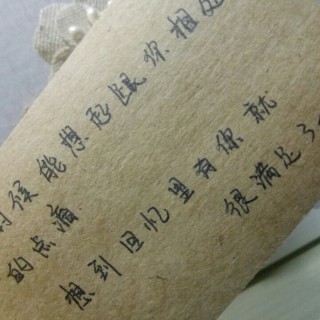 时候能想起跟你相处
的点滴.
想到回忆里有你就
很满足了